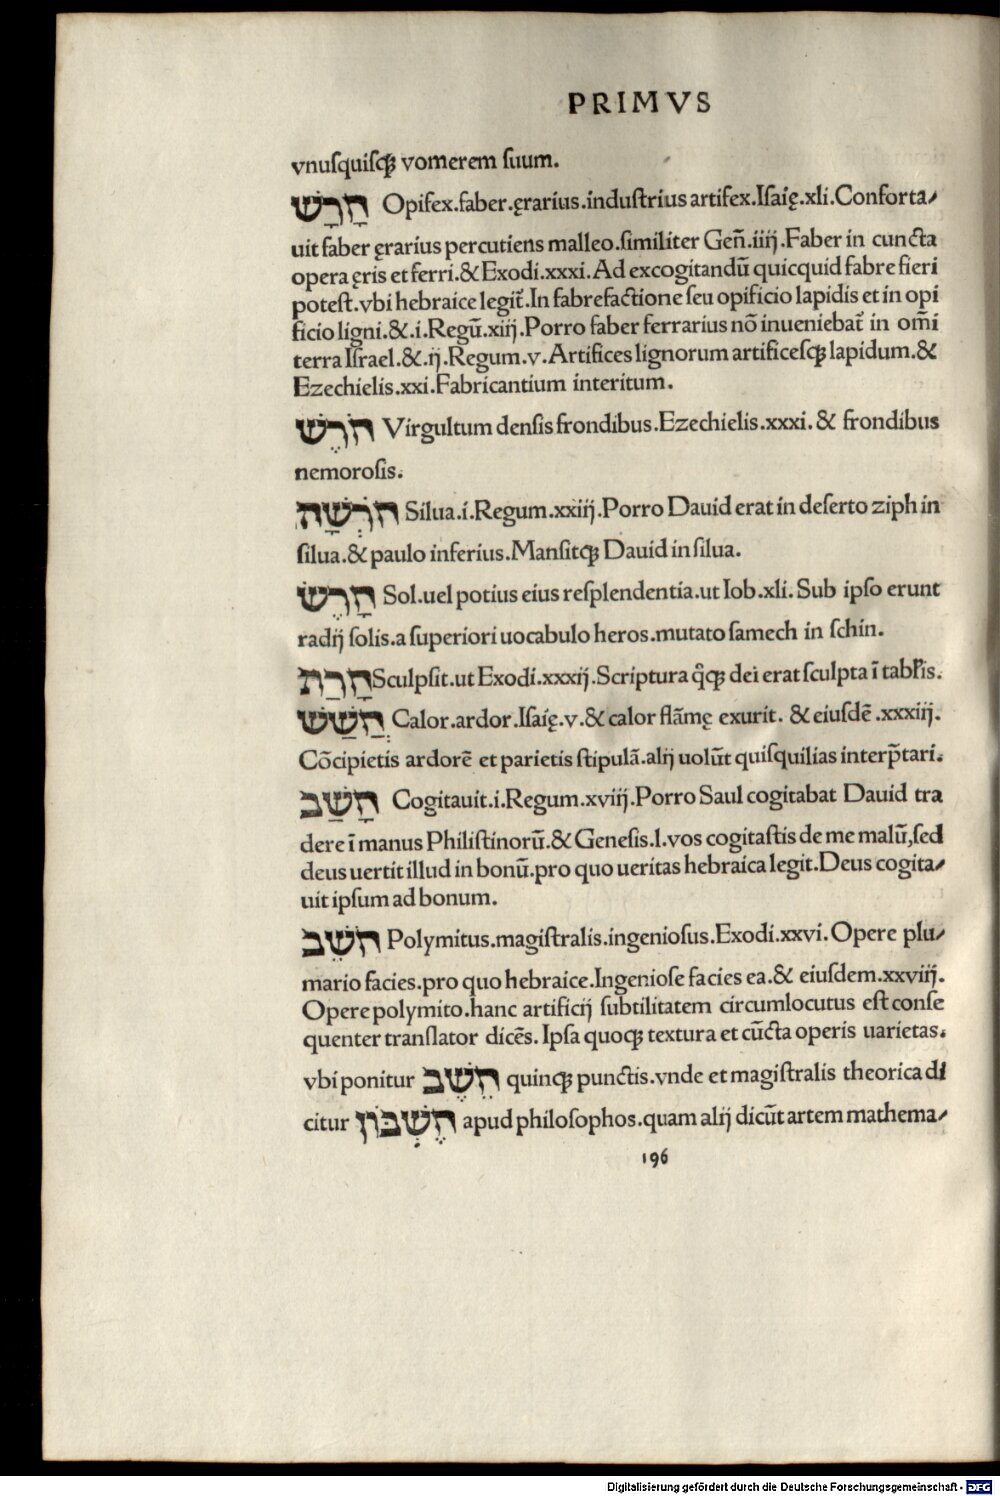 PRIMVS
vnuſquiſqꝫ vomerem ſuum.
חָרָשׁ Opifex.faber.ęrarius.induſtrius artifex.Iſaię.xli.Conforta⸗
uit faber ęrarius percutiens malleo.ſimiliter Geñ.iiij.Faber in cuncta
opera ęris et ferri.&Exodi.xxxi.Ad excogitandū quicquid fabre fieri
poteſt.vbi hebraice legit᷑.In fabrefactione ſeu opificio lapidis et in opi
ficio ligni.&.i.Regū.xiij.Porro faber ferrarius nō inueniebat᷑ in om̄i
terra Iſrael.&.ij.Regum.v.Artifices lignorum artificeſqꝫ lapidum.&
Ezechielis.xxi.Fabricantium interitum.
חֹרֶשׁ Virgultum denſis frondibus.Ezechielis.xxxi.& frondibus
nemoroſis.
חֹרְשָׁה Silua.i.Regum.xxiij.Porro Dauid erat in deſerto ziph in
ſilua.& paulo inferius.Manſitqꝫ Dauid in ſilua.
חָרֶשׂ Sol.uel potius eius reſplendentia.ut Iob.xli.Sub ipſo erunt
radij ſolis.a ſuperiori uocabulo heros.mutato ſamech in ſchin.
חָרַת Sculpſit.ut Exodi.xxxij.Scriptura q̄qꝫ dei erat ſculpta ī tabľis.
חֲשַׁשׁ Calor.ardor.Iſaię.v.& calor flāmę exurit. & eiuſdē.xxxiij.
Cōcipietis ardorē et parietis ſtipulā.alij uolūt quiſquilias interp̄tari.
חָשַׁב Cogitauit.i.Regum.xviij.Porro Saul cogitabat Dauid tra
dere ī manus Philiſtinorū.& Geneſis.l.vos cogitaſtis de me malū,ſed
deus uertit illud in bonū.pro quo ueritas hebraica legit.Deus cogita⸗
uit ipſum ad bonum.
חֹשֵׁב Polymitus.magiſtralis.ingenioſus.Exodi.xxvi.Opere plu⸗
mario facies.pro quo hebraice.Ingenioſe facies ea.& eiuſdem.xxviij.
Opere polymito.hanc artificij ſubtilitatem circumlocutus eſt conſe
quenter tranſlator dicēs.Ipſa quoqꝫ textura et cūcta operis uarietas.
vbi ponitur חֵשֶׁב quinqꝫ punctis.vnde et magiſtralis theorica di
citur חֶשְׁבּוֹן apud philoſophos.quam alij dicūt artem mathema⸗
196
Digitalisierung gefördert durch die Deutsche Forschungsgemeinschaft - DFG